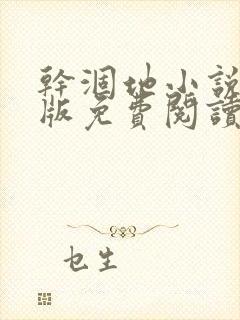 幹涸地小説
版免費閱讀
乜生